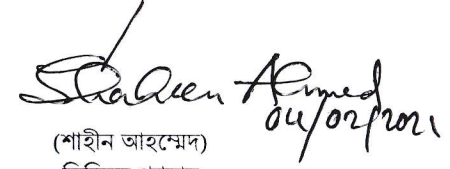 Shaheen Ahmed
04/02/2021
(শাহীন আহম্মেদ)